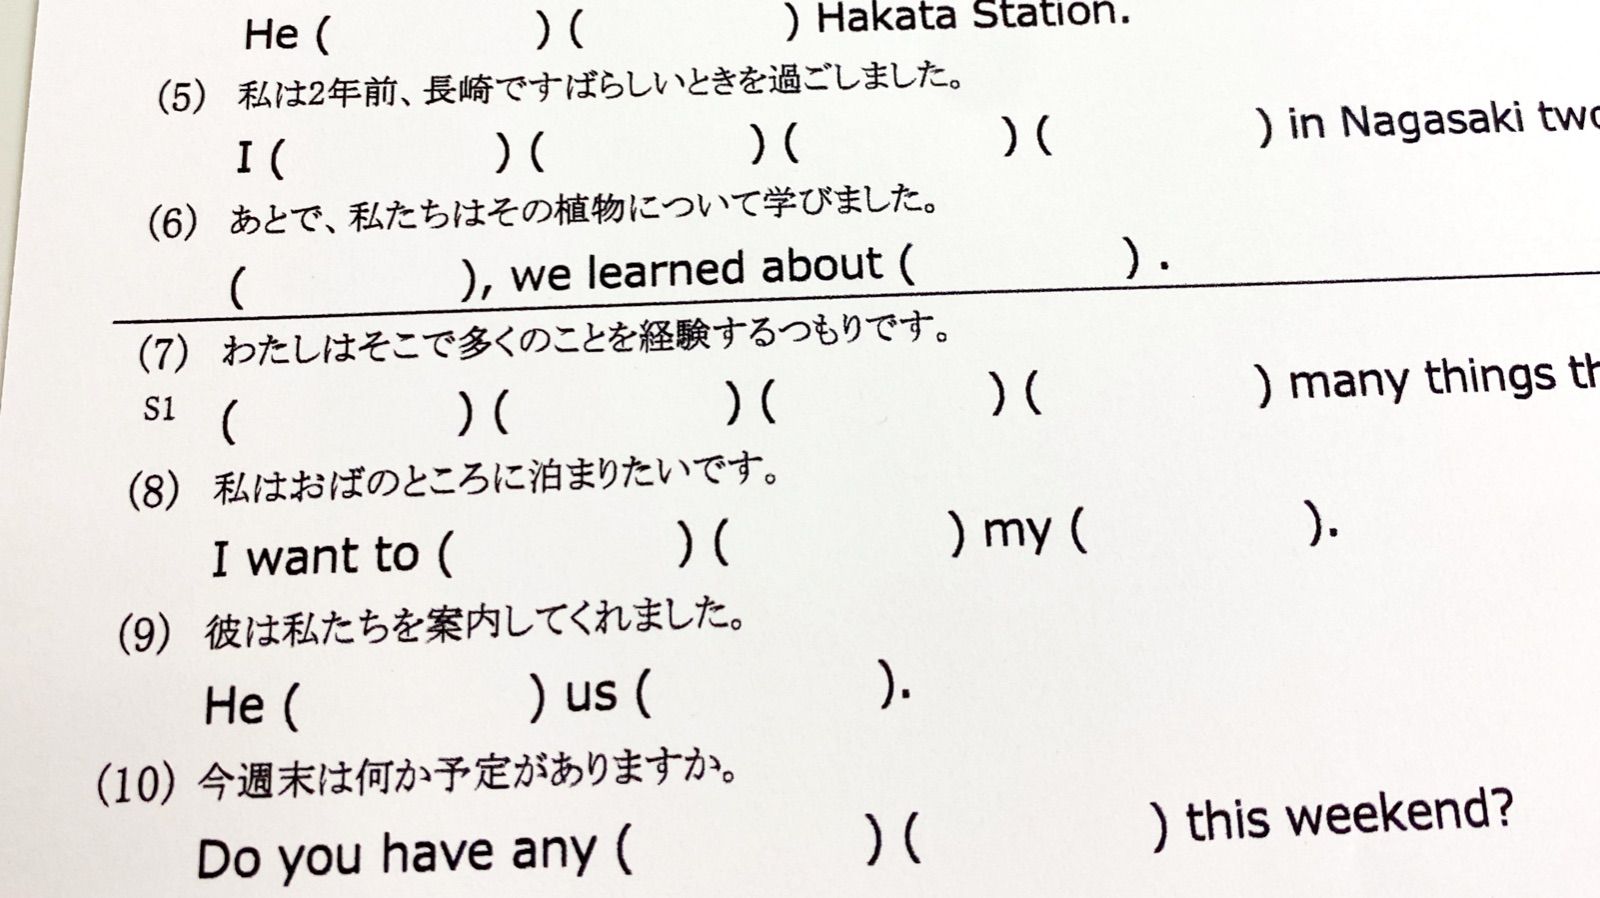 He (　　　) (　　　) Hakata Station.
(5) 私は2年前、長崎ですばらしいときを過ごしました。
I (　　　) (　　　) (　　　) (　　　) in Nagasaki
(6) あとで、私たちはその植物について学びました。
(　　　), we learned about (　　　) .
(7) わたしはそこで多くのことを経験するつもりです。
S1 (　　　) (　　　) (　　　) (　　　) many things
(8) 私はおばのところに泊まりたいです。
I want to (　　　) (　　　) my (　　　).
(9) 彼は私たちを案内してくれました。
He (　　　) us (　　　).
(10) 今週末は何か予定がありますか。
Do you have any (　　　) (　　　) this weekend?